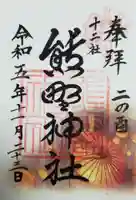 奉拝
二の酉
十二社
熊野神社
令和五年十一月二十三日